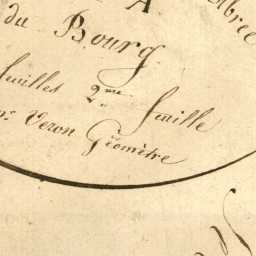 A
du Bourg
feuilles 2.me feuille
Mr. Veron Géomètre